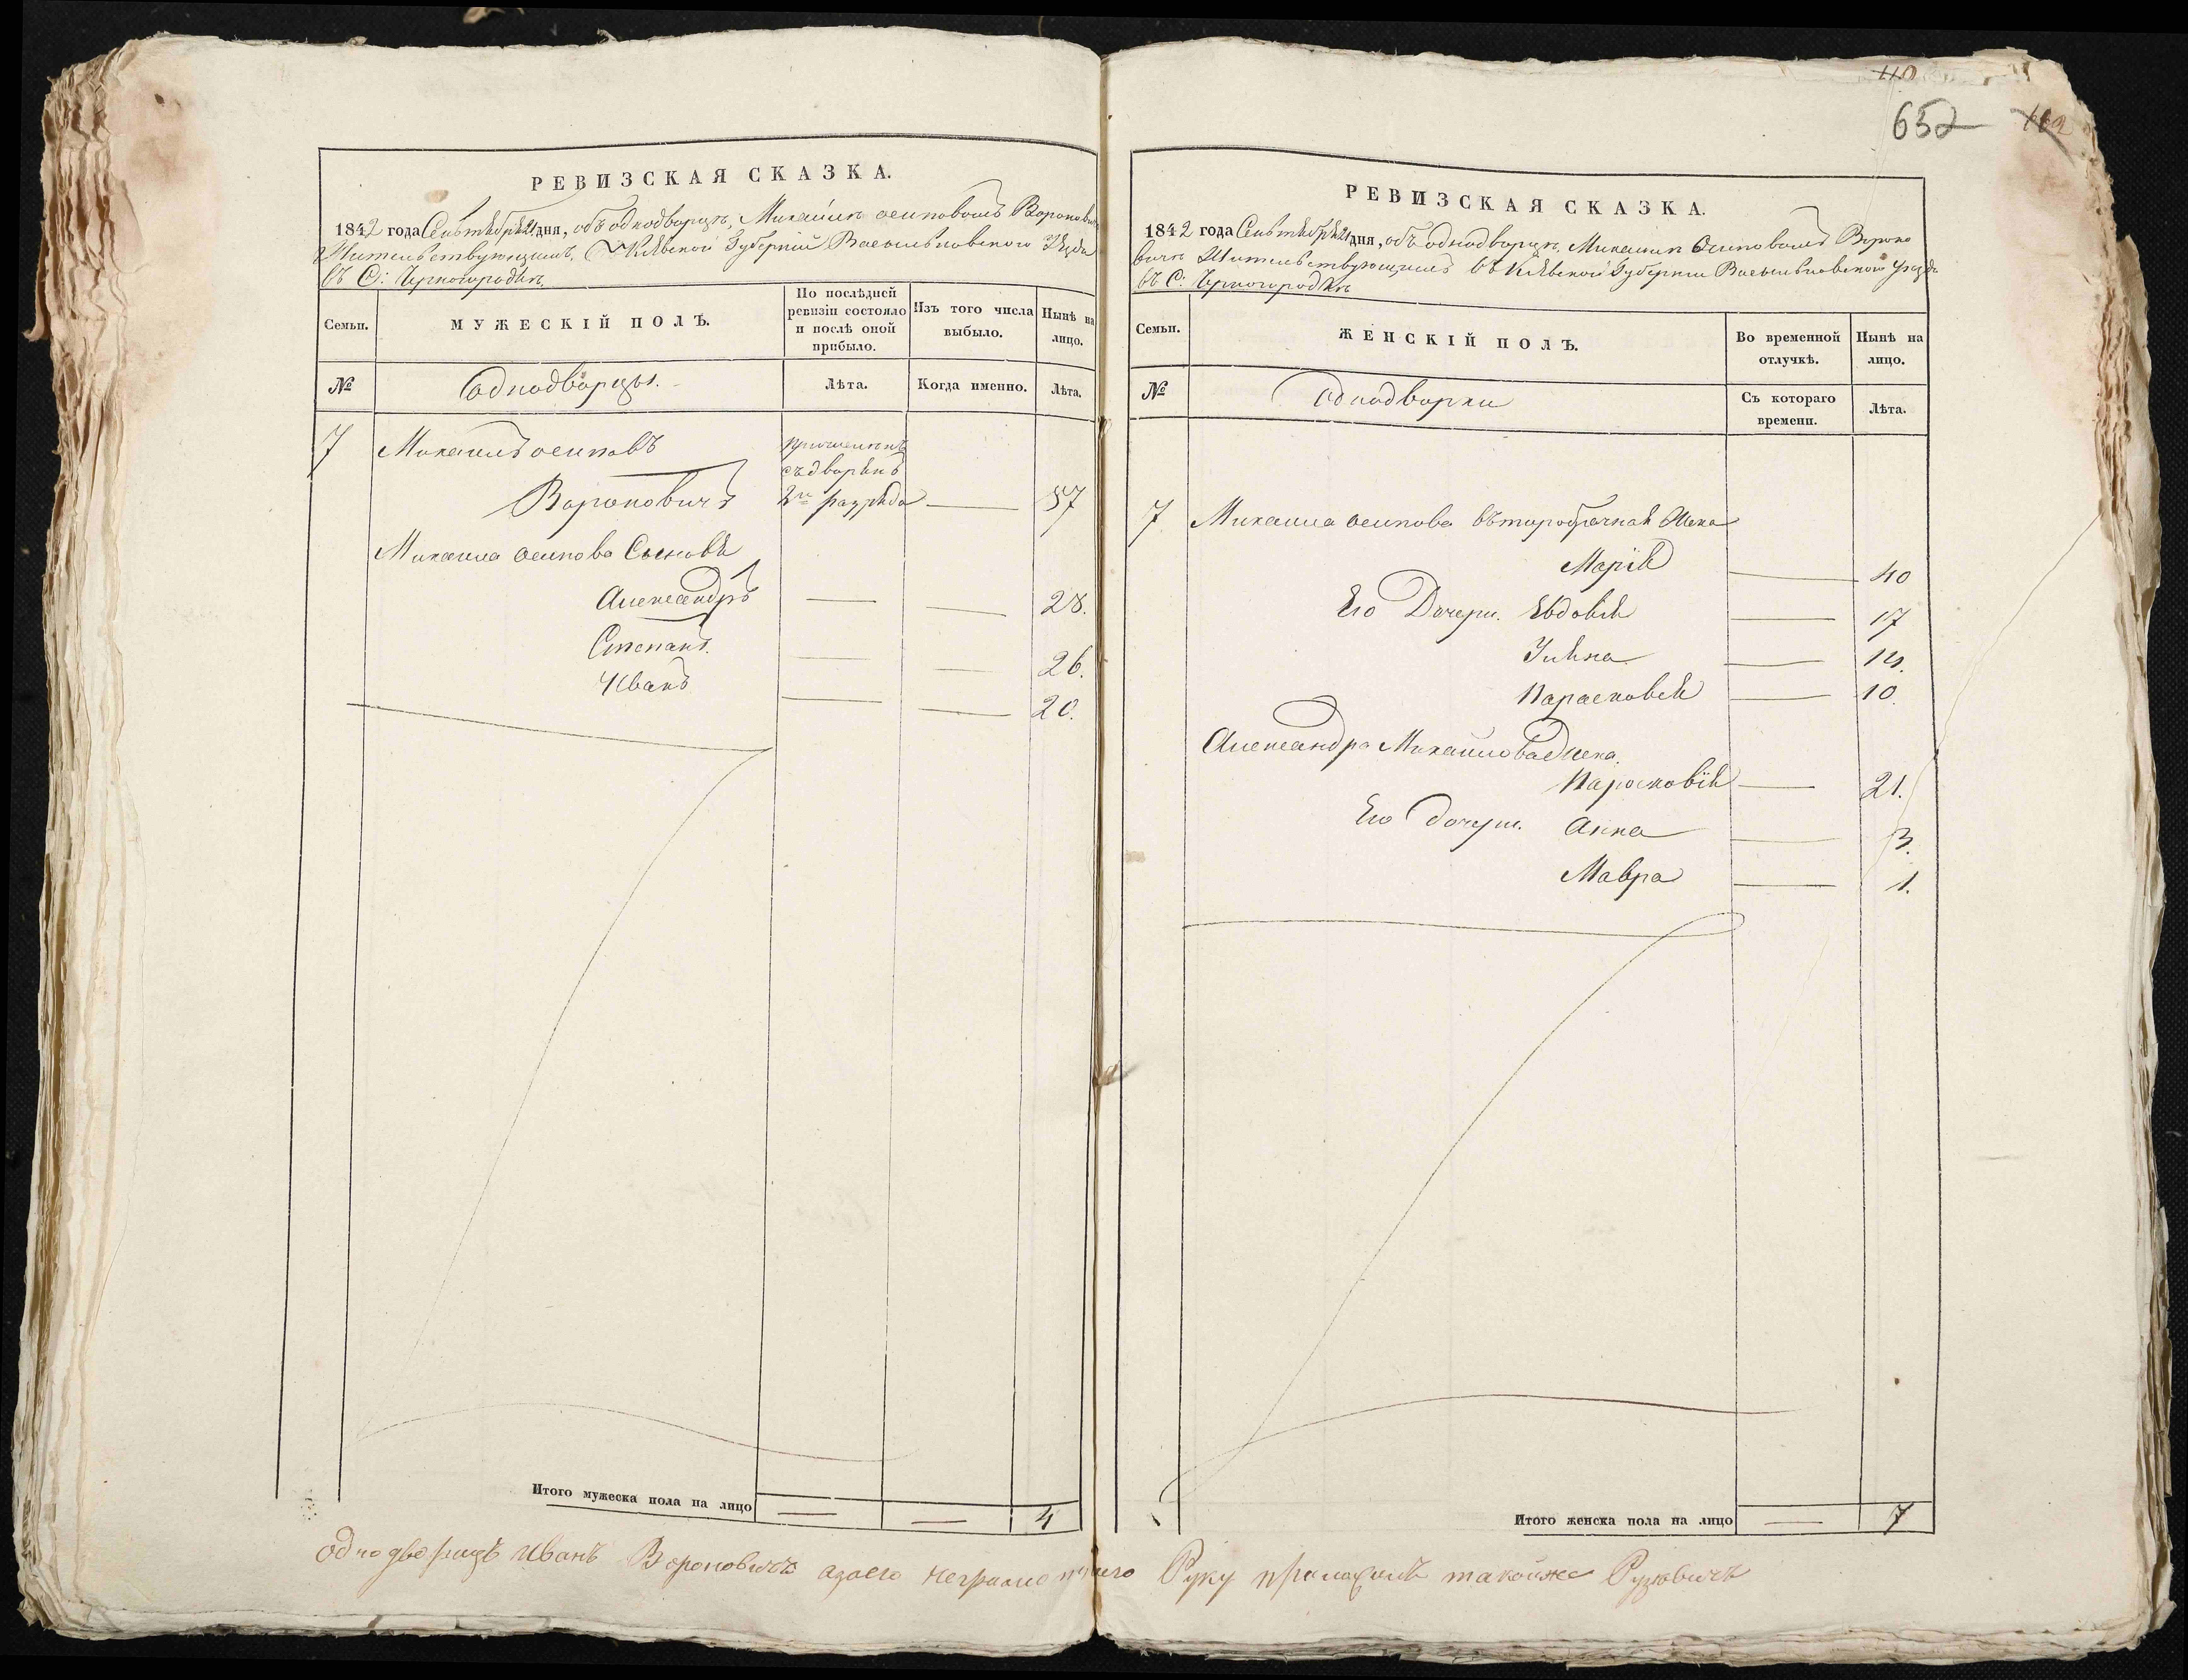 РЕВИЗСКАЯ СКАЗКА.
1842 года Сентября 21 дня, объ однодворцѣ, Михаилѣ Осиповомъ Вороновичѣ
Жительствующимъ, Кіевской Губерніи Васильковскаго Уезда
въ С: Черногородкѣ
Семьи.
МУЖЕСКІЙ ПОЛЪ.
По послѣдней ревизіи состояло и послѣ оной прибыло.
Изъ того числа выбыло.
Нынѣ на лицо.
№
однодворцы.
Лѣта.
Когда именно.
Лѣта.
7 Михаилъ осиповъ
съ дворянъ
Вороновичъ 2го разряда — 57
Михаила осипова Сыновья
Александръ — — 28.
Степанъ. — — 26.
Иванъ — — 20.
Итого мужеска пола на лицо — — 4
652
РЕВИЗСКАЯ СКАЗКА.
1842 года Сентября 21 дня, объ однодворцѣ, Михаилѣ Осиповомъ Вороно
вичѣ Жительствующимъ въ Кіевской Губерніи Васильковскаго уезда
въ С: Черногородкѣ
Семьи.
ЖЕНСКІЙ ПОЛЪ.
Во временной отлучкѣ.
Нынѣ на лицо.
№
однодворки
Съ котораго времени.
Лѣта.
7. Михаила осипова въторобрачная Жена
Марія — 40
Его Дочери. Евдокія — 17
Ульяна — 14.
Парасковея — 10.
Александра Михайлова Жена.
Парасковія — 21.
Его дочери. Анна — 3.
Мавра — 1.
Итого женска пола на лицо — 7
однодворецъ Иванъ Вороновичъ азаего неграмотнаго Руку приложилъ такойже Рузевичъ